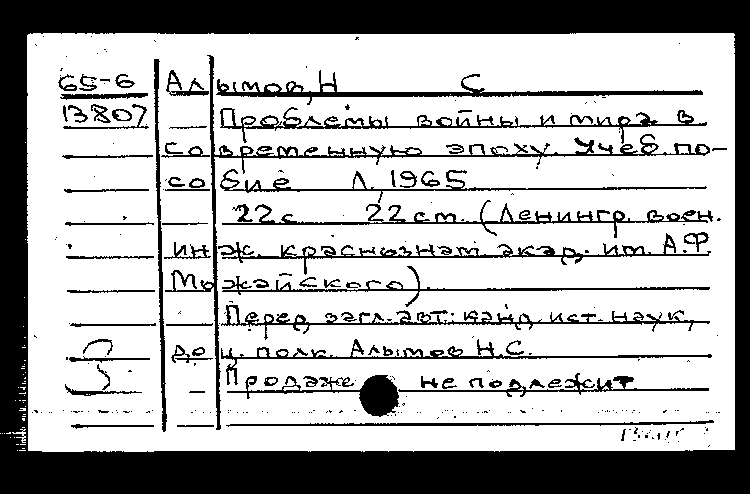 65-6 Алымов, Н С
13807 Проблемы войны и мира в
современную эпоху. Учеб. по-
собие Л, 1965
22с 22 см. (Ленингр. воен.
инж. краснознам. акад. им. А.Ф.
Можайского).
Перед загл. авт.: канд. ист. наук,
доц. полк. Алымов Н.С.
Продаже не подлежит